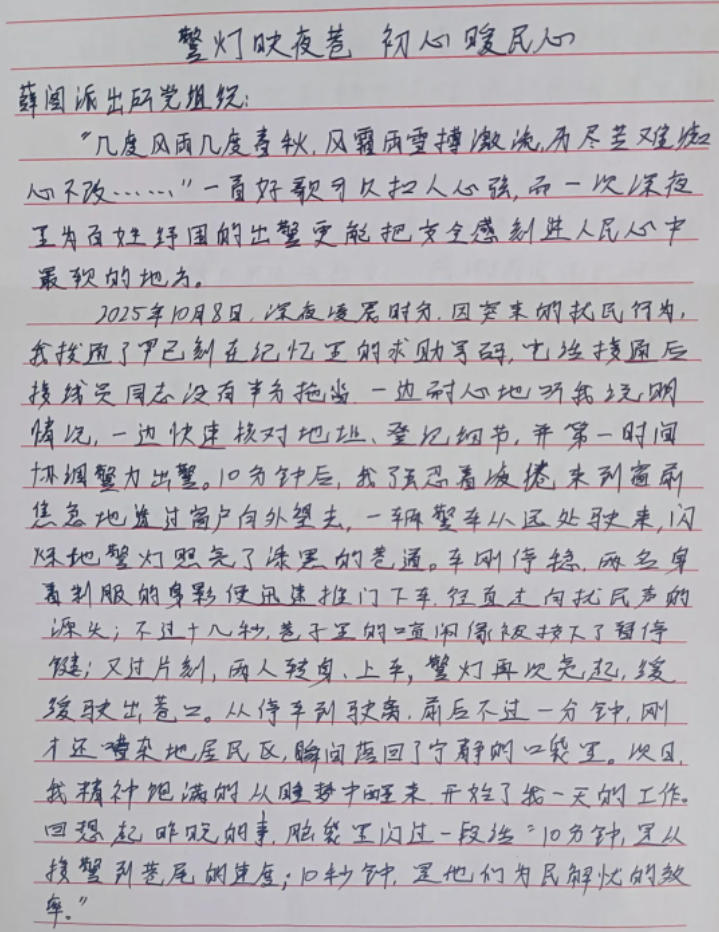 警灯映夜巷 初心暖民心
薛阁派出所党组织：
“几度风雨几度春秋，风霜雨雪搏激流，历尽苦难痴
心不改……”一首好歌可以扣人心弦，而一次深夜
里为百姓纾困的出警更能把安全感刻进人民心中
最软的地方。
2025年10月8日，深夜凌晨时分，因突来的扰民行为，
我拨通了早已刻在记忆里的求助号码，电话接通后
接线员同志没有半分拖沓，一边耐心地听我说明
情况，一边快速核对地址、登记细节，并第一时间
协调警力出警。10分钟后，我强忍着疲惓来到窗前
焦急地透过窗户向外望去，一辆警车从远处驶来，闪
烁地警灯照亮了漆黑的巷道。车刚停稳，两名身
着制服的身影便迅速推门下车，径直走向扰民声的
源头；不过十几秒，巷子里的喧闹像被按下了暂停
键；又过片刻，两人转身、上车，警灯再次亮起，缓
缓驶出巷口。从停车到驶离，前后不过一分钟，刚
才还嘈杂地居民区，瞬间落回了宁静的口袋里。次日，
我精神饱满的从睡梦中醒来，开始了我一天的工作。
回想起昨晚的事，脑袋里闪过一段话“10分钟，是从
接警到巷尾的速度；10秒钟，是他们为民解忧的效
率。”